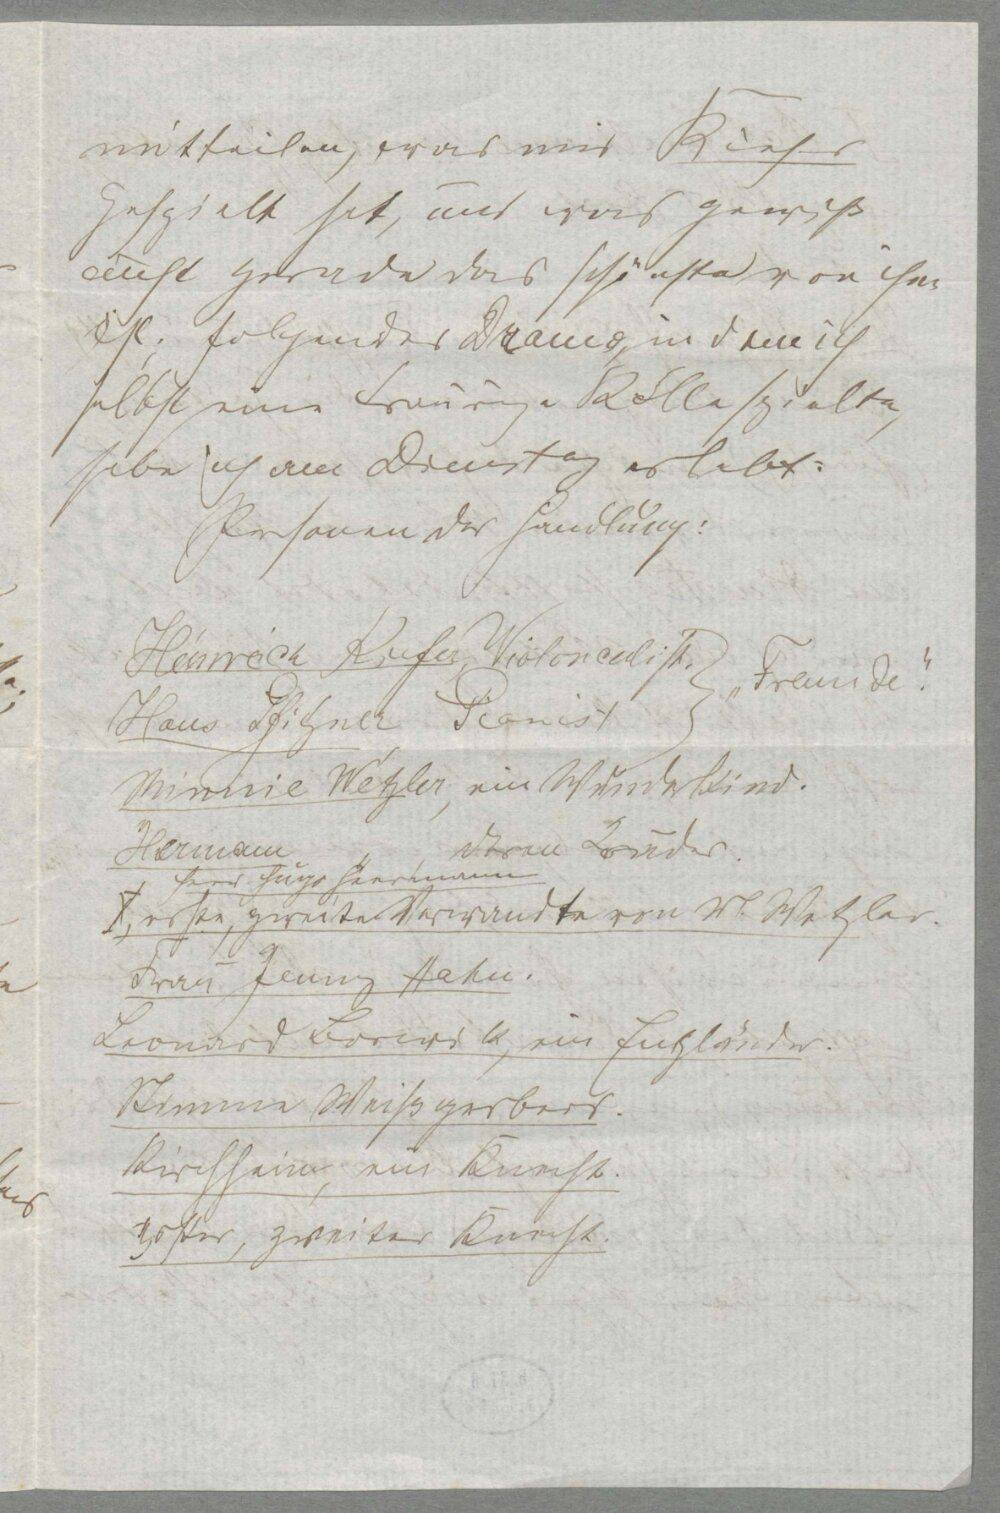 mitteilen, was mir Kiefer
gespielt hat, und was gewiß
nicht gerade das schönste von ihm
ist. folgendes Drama, in dem ich
selbst eine traurige Rolle spielte,
habe ich am Dienstag erlebt:
Personen der Handlung:
Heinrich Kiefer, Violoncellist. } „Freunde“.
Hans Pfitzner Pianist
Minnie Wetzler, ein Wunderkind.
Hermann " , deren Bruder.
Herr Hugo Heermann
X, erste, zweite Verwandte von M. Wetzler.
Frau Jenny Hahn.
Leonard Borwick, ein Engländer.
Stimme Weißgerbers.
Kirchheim, ein Knecht.
erster, zweiter Knecht.